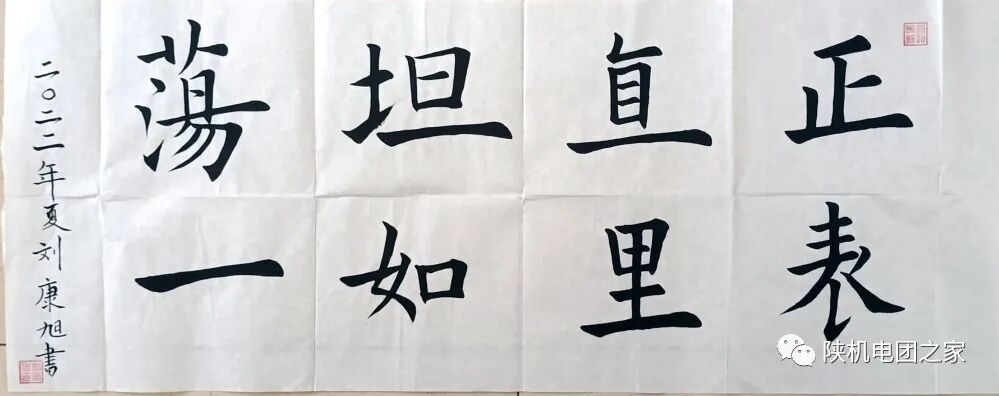 正直坦蕩
表里如一
二〇二二年夏刘康旭書
陕机电团之家